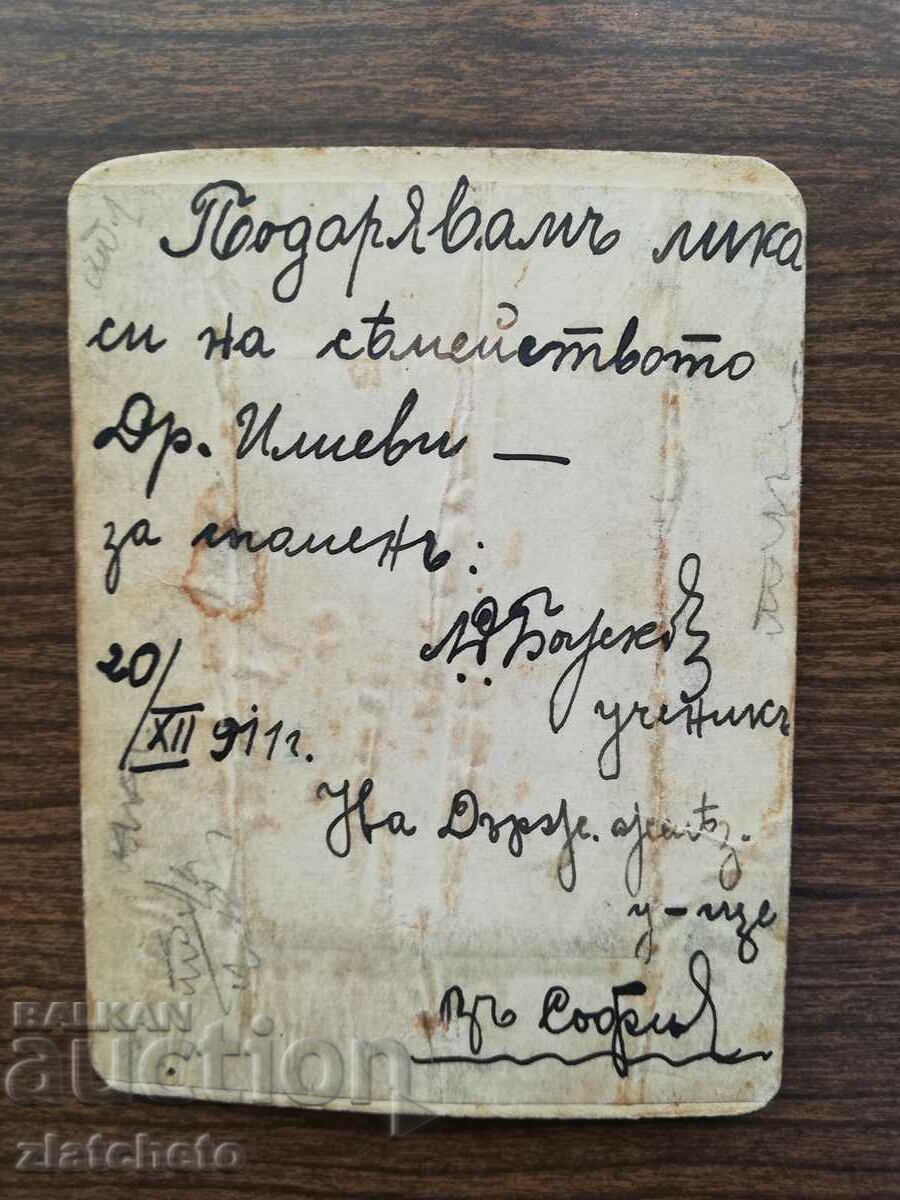 Подарявамъ лика
си на сѣмейството
Др. Илиеви —
за споменъ:
20/XII 911 г.
ученикъ
На Държ. желѣз.
у-ще
въ София
BALKAN
auction
zlatcheto